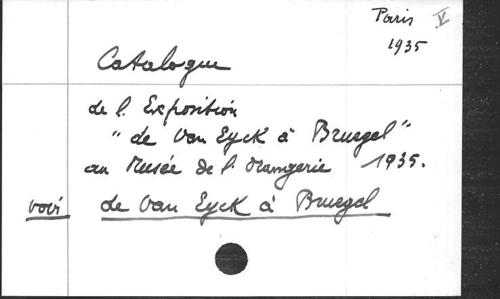 Paris V
1935
Catalogue
de l'Exposition
"de Van Eyck à Bruegel"
au Musée de l'Orangerie 1935.
voir de Van Eyck à Bruegel